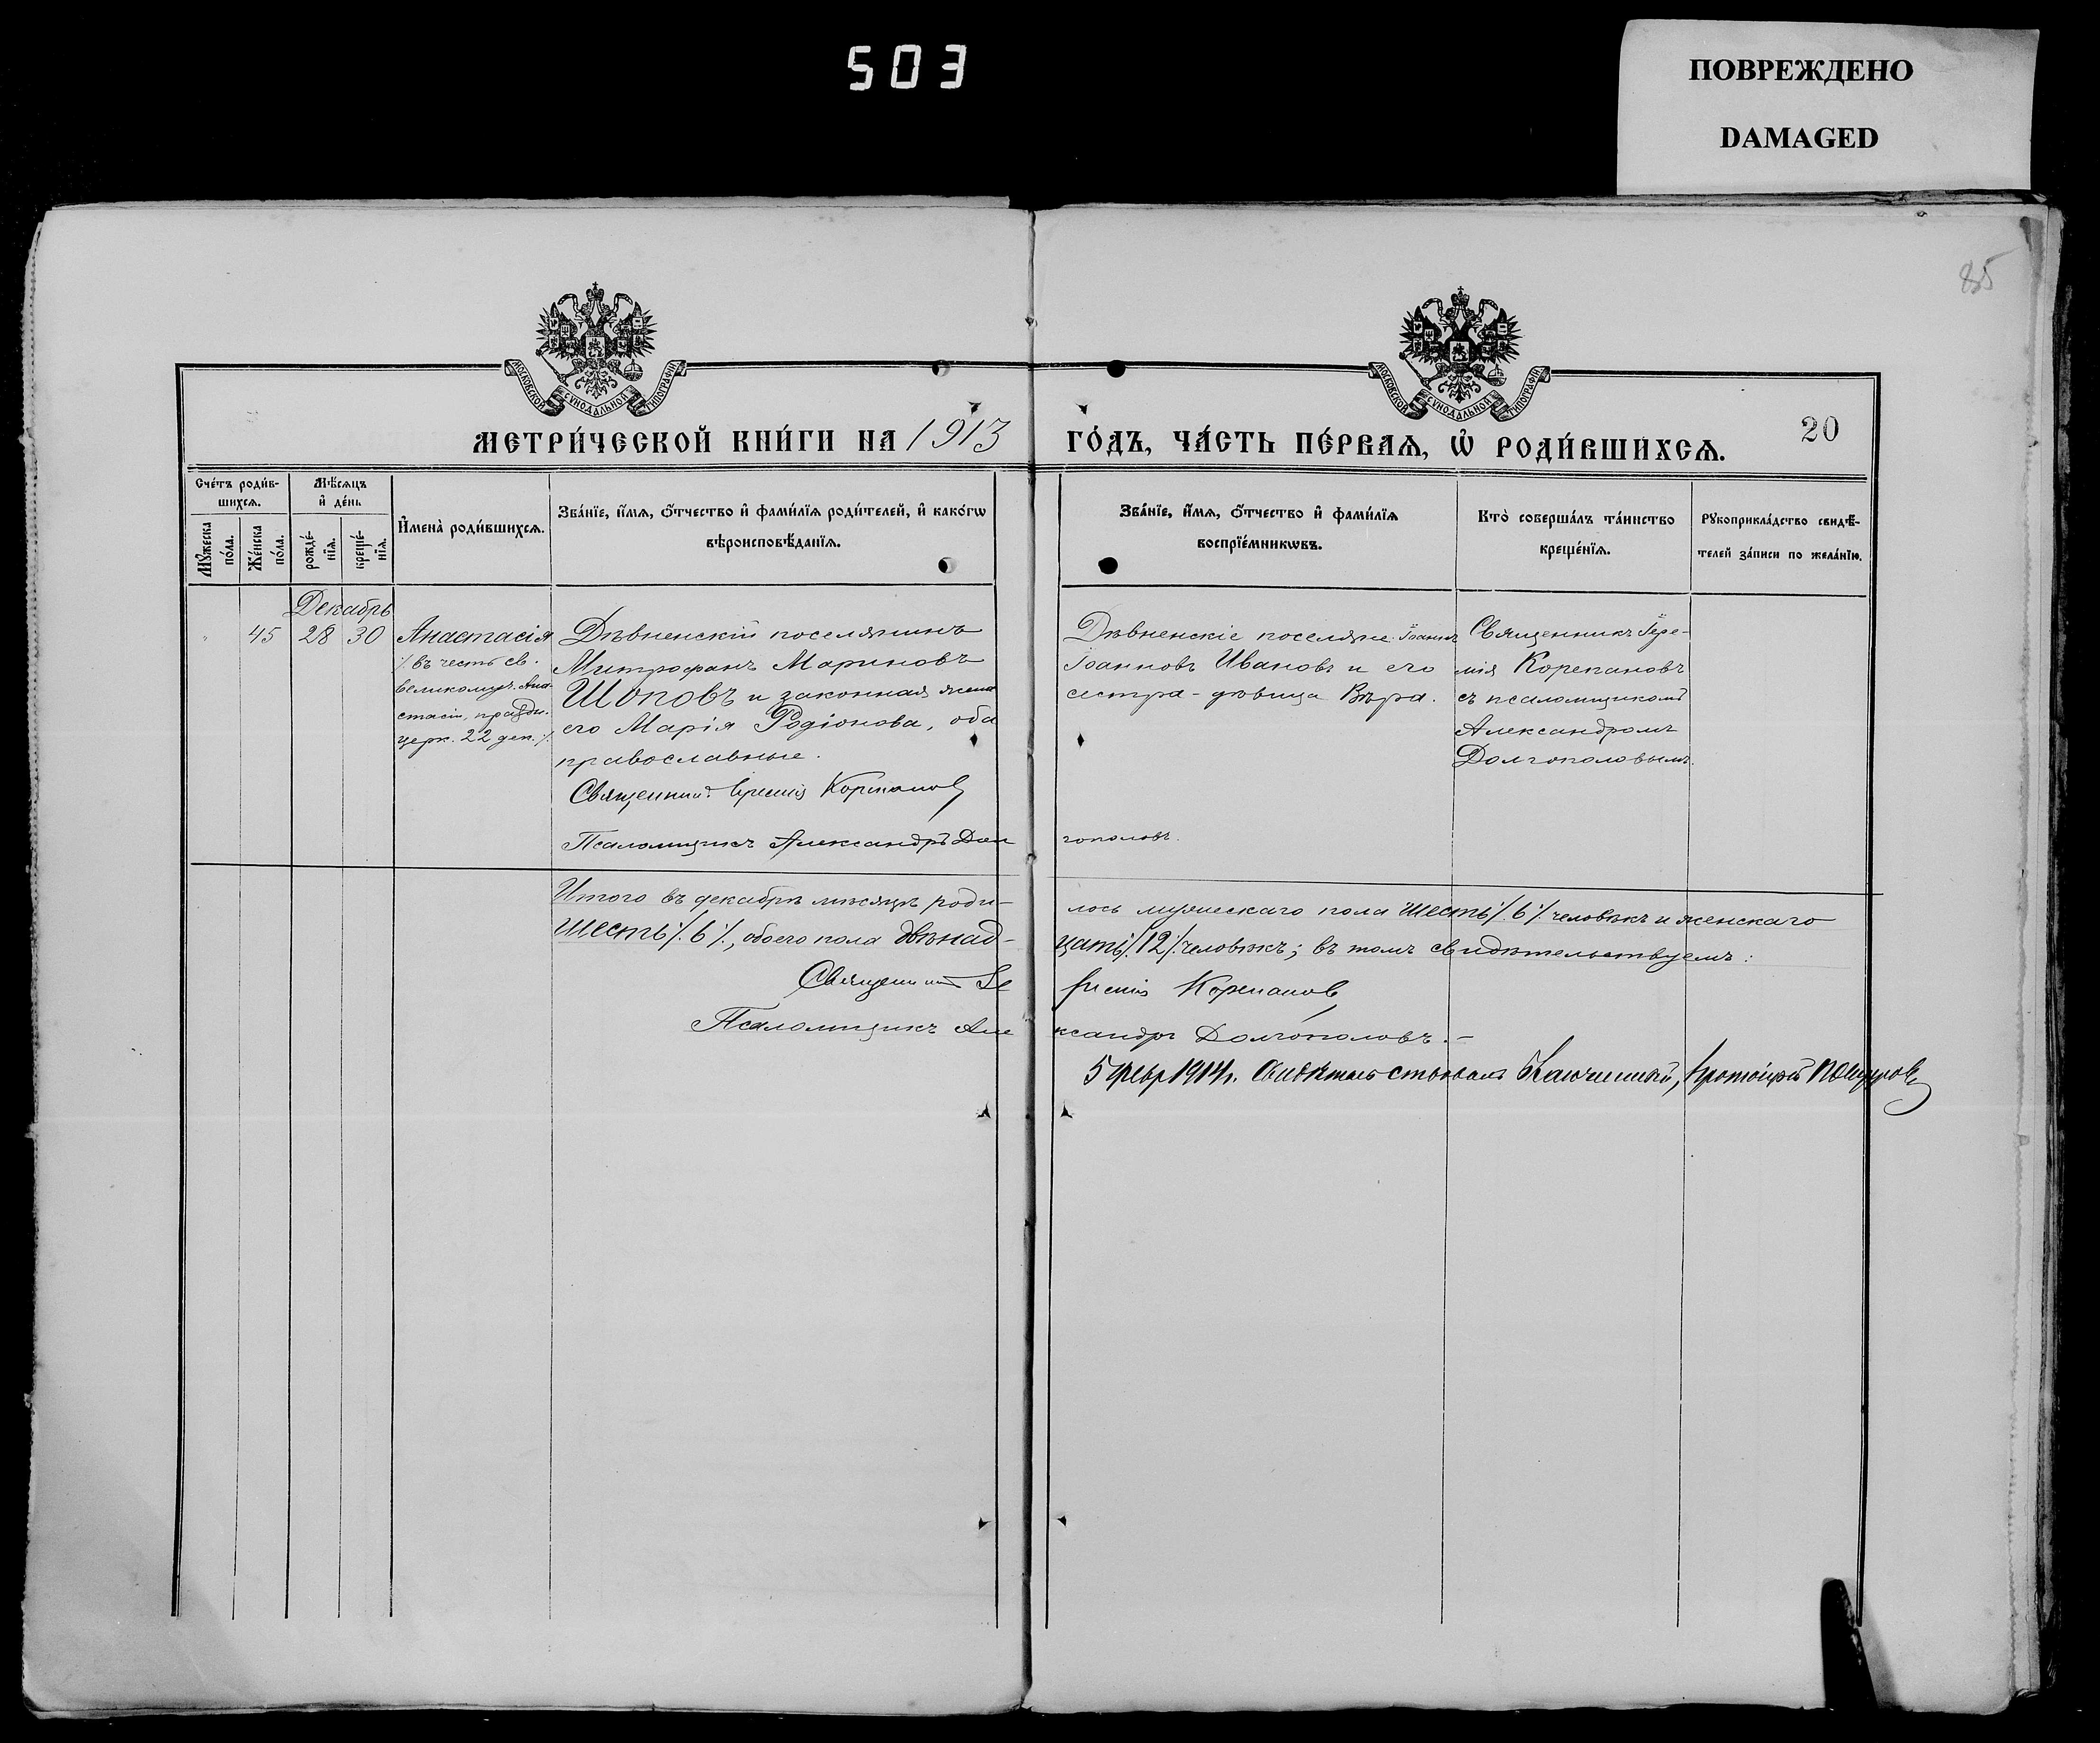 503
ПОВРЕЖДЕНО
DAMAGED
85
МОСКОВСКОЙ СѴНОДАЛЬНОЙ ТИПОГРАФІИ
МОСКОВСКОЙ СѴНОДАЛЬНОЙ ТИПОГРАФІИ
МЕТРИ́ЧЕСКОЙ КНИ́ГИ НА 1913 ГО́ДЪ, ЧА́СТЬ ПЕ́РВАѦ, Ѡ҆ РОДИ́ВШИХСѦ.
20
Сче́тъ роди́в-
шихсѧ.
Мꙋ́жеска
по́ла.
Же́нска
по́ла.
Мѣ́сѧцъ
и҆ де́нь
рожде́-
нїѧ.
креще́-
нїѧ.
И҆мена̀ роди́вшихсѧ.
Зва́нїе, и҆́мѧ, ѻ҆́тчество и҆ фами́лїѧ роди́телей, и҆ како́гѡ
вѣроисповѣ́данїѧ.
Зва́нїе, и҆́мѧ, ѻ҆́тчество и҆ фами́лїѧ
воспрїе́мникѡвъ.
Кто̀ соверша́лъ та́инство
креще́нїѧ.
Рꙋкоприкла́дство свидѣ́-
телей за́писи по жела́нїю.
Декабрь
" 45 28 30
Анастасія
/. въ честь св.
великомуч. Ана-
стасіи, праздн.
церк. 22 дек. ./
Дѣвненскій поселянинъ
Митрофанъ Мариновъ
Шоповъ и законная жена
его Марія Родіонова, оба
православные.
Священникъ Іеремія Корепановъ
Псаломщикъ Александръ Долгополовъ.
Дѣвненскіе поселяне: Іоаннъ
Іоанновъ Ивановъ и его
сестра - дѣвица Вѣра.
Священникъ Іере-
мія Корепановъ
съ псаломщикомъ
Александромъ
Долгополовымъ.
Итого въ декабрѣ мѣсяцѣ роди-лось мужескаго пола шесть /. 6 ./ человѣкъ и женскаго
шесть /. 6 ./, обоего пола двѣнад-цать /. 12 ./ человѣкъ; въ томъ свидѣтельствуемъ:
Священникъ Іеремія Корепановъ
Псаломщикъ Александръ Долгополовъ. -
5 февр 1914 г. Свидѣтельствовалъ Благочинный, Протоіерей